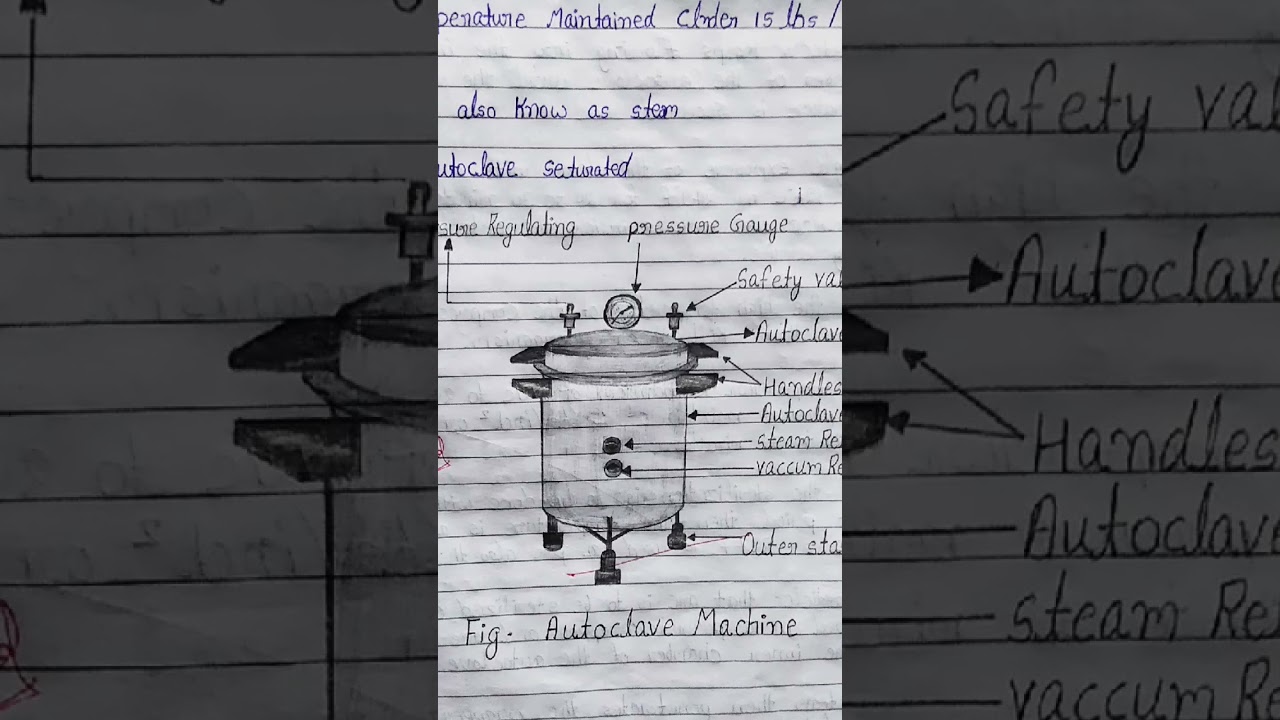 perature Maintained Under 15 lbs /
also Know as stem
utoclave seturated
sure Regulating pressure Gauge
Safety val
Autoclave
Handles
Autoclave
steam Re
vaccum Re
Outer sta
Fig. Autoclave Machine
Safety val
Autoclave
Handles
Autoclave
steam Re
vaccum Re